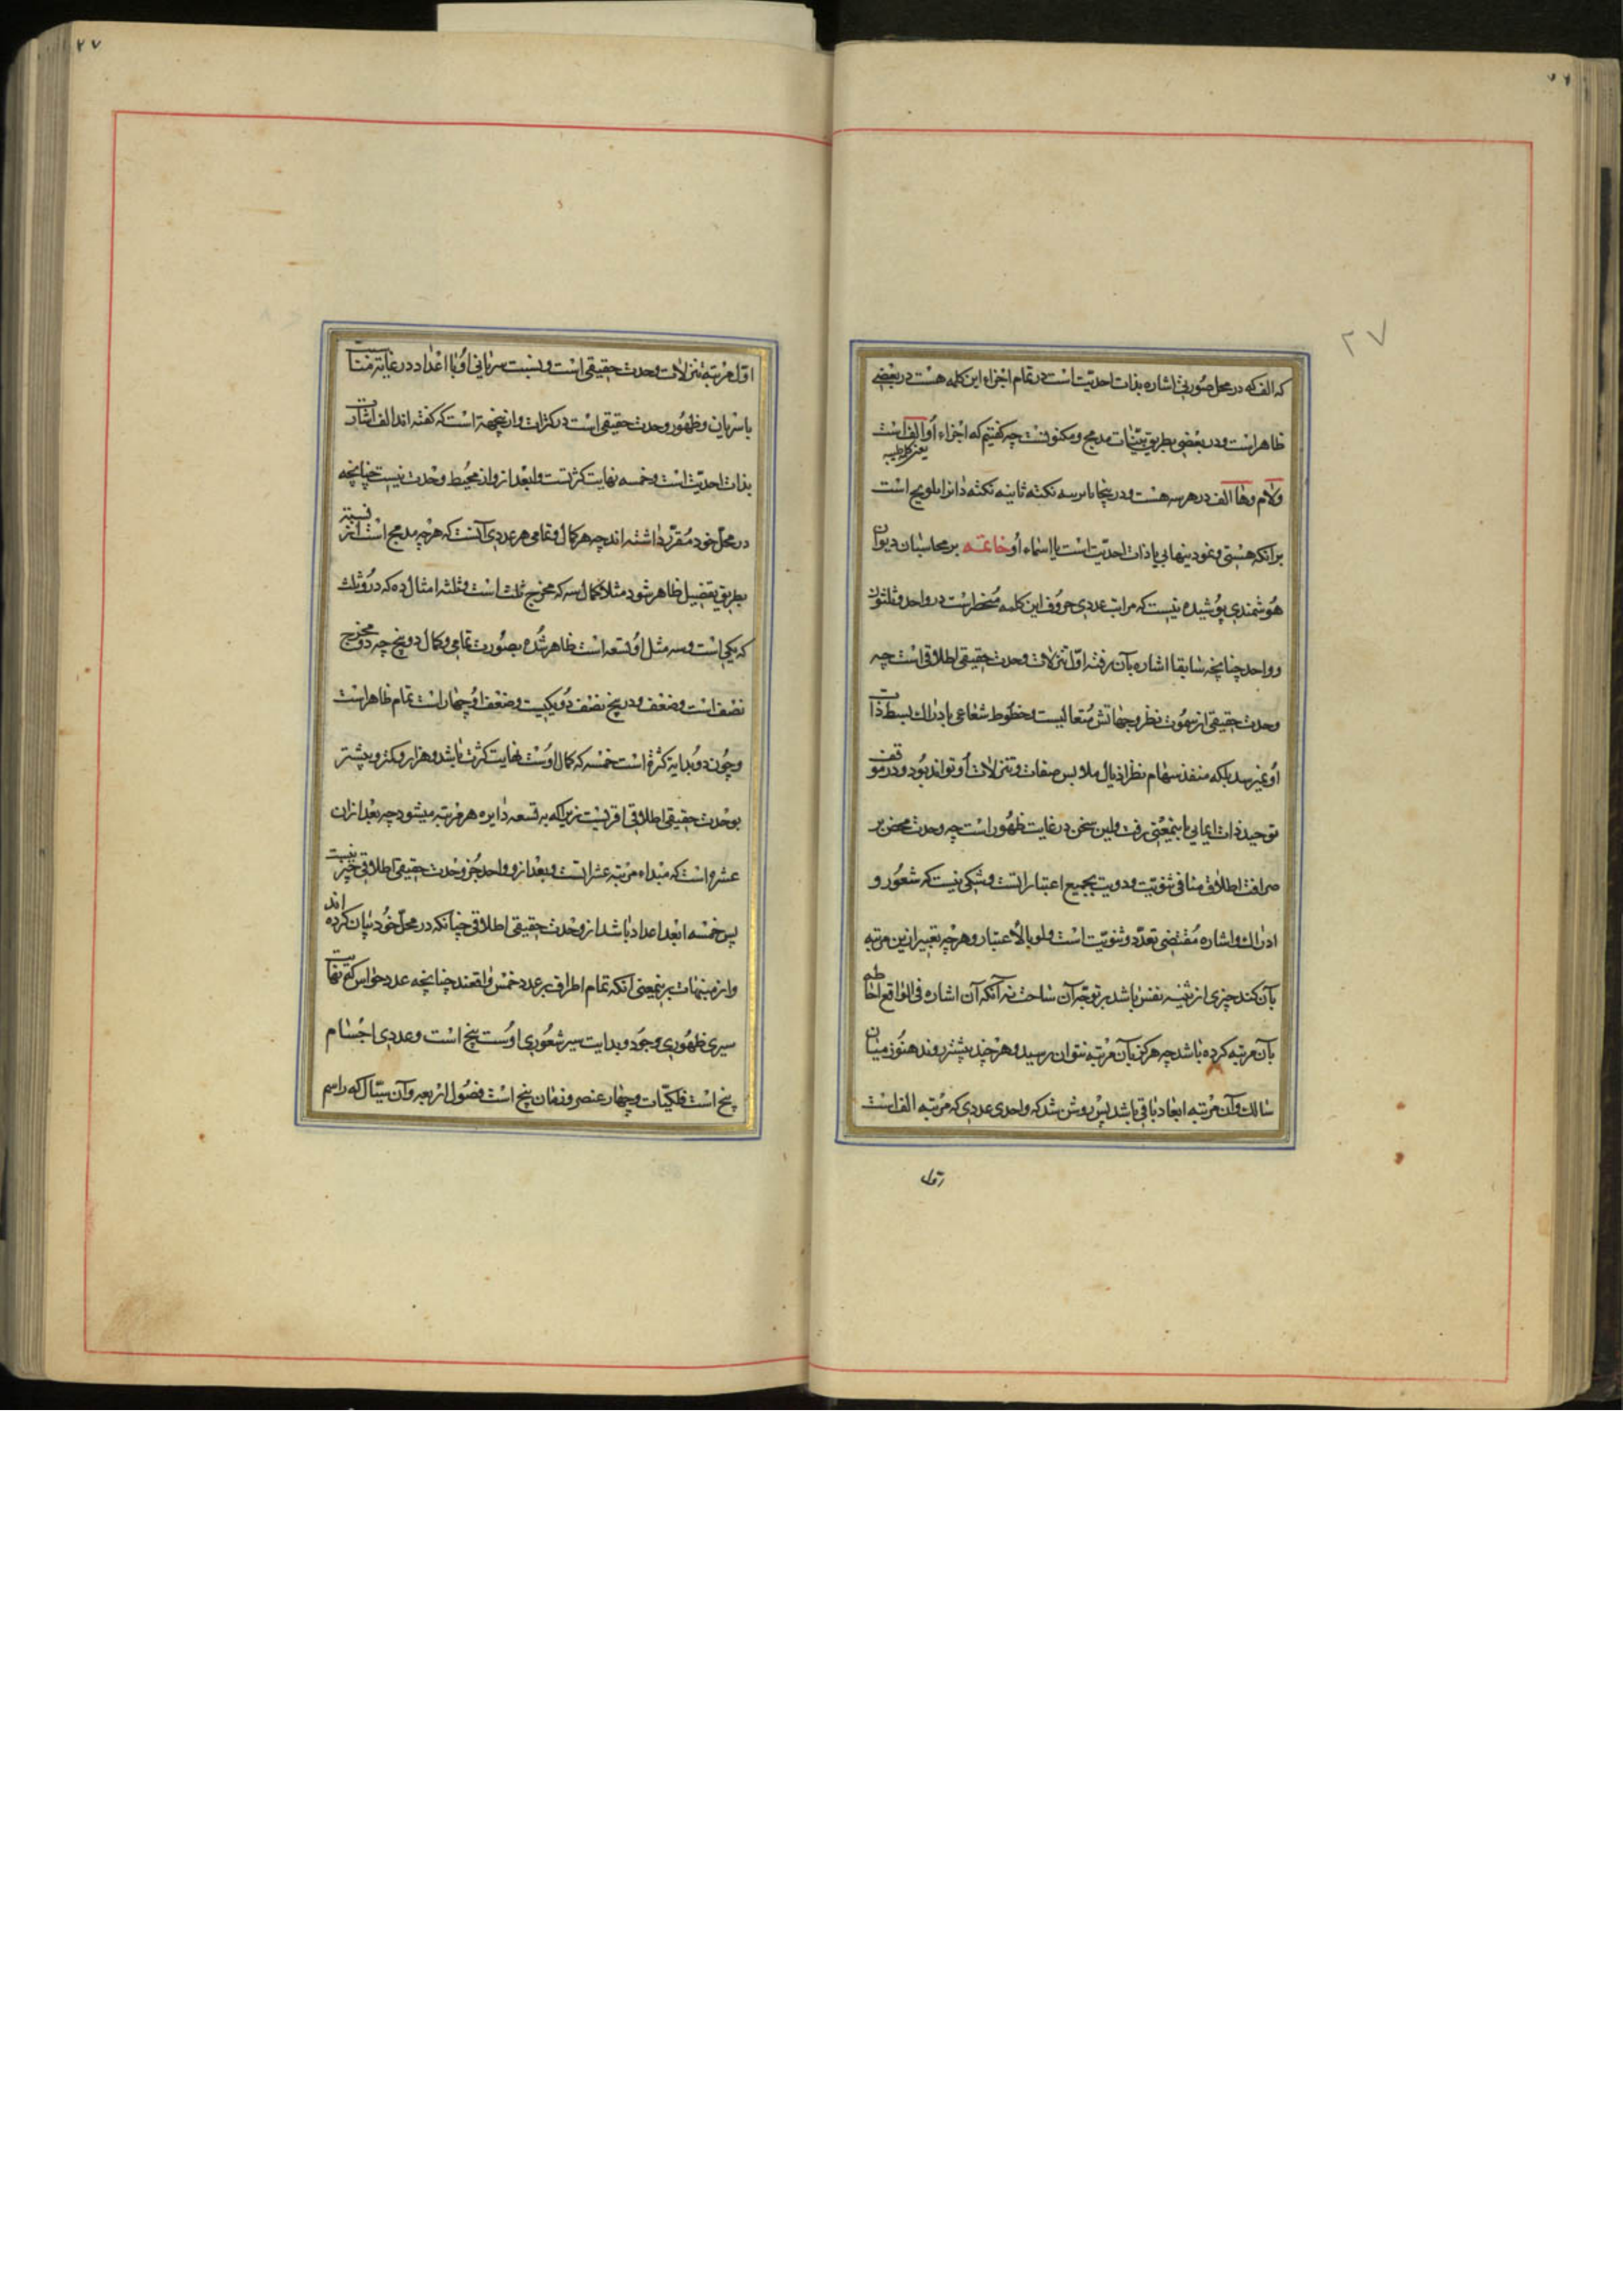 ۲۷
که الف که در محل صوری اشاره بذات احدیت است در تمام اجزاء این کلمه هست در بعضی
ظاهر است و در بعضی بطریق بینات مدمج و مکنونست چه گفتیم که اجزاء او الف است
یعنی کلمه طیبه
ولام وها الف در هر سه هست و در پنجا نکته ثانیه نکته دانرا بلویح است
برانکه هستی و نمود بینهایی یا ذات احدیت است یا اسماء او خاتمه بر محاسبان دیوان
هوشمندی پوشیده نیست که مراتب عددی حروف این کلمه منحصر است در واحد وثلثون
وواحد چنانچه سابقا اشاره بآن رفته اول تنزلات وحدت حقیقی اطلاقی است چه
وحدت حقیقی از سموت نظر و جهاتش متعالیست و خطوط شعاعی بادراک بسط ذات
او نمیرسد بلکه منفذ سهام نظر اذیال ملابس صفات و تنزلات او تواند بود و در موقف
توحید ذات ایمایی باینمعنی رفت و این سخن در غایت ظهور است چه وحدت محض بر
صرافت اطلاق منافی ثنویت و دویت بجمیع اعتبارات است و شکی نیست که شعور و
ادراک و اشاره مقتضی تعدد و ثنویت است ولو بالاعتبار و هر چه تعبیر ازین مرتبه
بآن کند چیزی از نفس باشد بر توجه آن ساحت نه آنکه آن اشاره فی الواقع احاطه
بآن مرتبه کرده باشد چه هرکز بآن مرتبه نتوان رسید و هر چند پیشتر روند هنوز میان
سالک و آن مرتبه ابعاد باقی باشد پس روشن شد که واحدی عددی که مرتبه الف است
اول
۲۷
اول مرتبه تنزلات وحدت حقیقی است و نسبت سریانی او با اعداد در غایة مناسبت
با سریان و ظهور وحدت حقیقی است در کثرات و ازینجهة است که گفته اند الف اشارت
بذات احدیت است و خمسه نهایت کثرتست و ابعد ازو از محیط وحدت نیست چنانچه
در محل خود مقرر داشته اند چه هر کمال و تمامی هر عددی آنست که هر چه مدمج است از
بطریق تفصیل ظاهر شود مثلا کمال سه که مخرج ثلث است و ثلثه امثال ده که درو ثلث
که یکی است و سه مثل او تسعه است ظاهر شده بصورت تمامی و کمال دو پنج چه دو مخرج
نصف است و ضعف و در پنج نصف دو یکیست و ضعف او چهار است تمام ظاهر است
و چون دو بدایة کثرة است خمسه که کمال اوست نهایت کثرت باشد و هزار و کثر و بیشتر
بوحدت حقیقی اطلاقی اقربست زیراکه به تسعه دایره هر مرتبه میشود چه بعد ازان
عشره است که مبداء مرتبه عشراتست و بعد ازو واحد جز وحدت حقیقی اطلاقی چیز نیست
پس خمسه ابعد اعداد باشد از وحدت حقیقی اطلاقی چنانکه در محل خود بیان کرده اند
و از مبینهات برینمعنی آنکه تمام اطراف بر عدد خمس واقعند چنانچه عدد حواس که نهایت
سیری ظهوری وجود و بدایت سیر شعوری اوست پنج است و عددی اجسام
پنج است فلکیات و چهار عنصر و زمان پنج است فصول اربعه و آن سیال که راسم